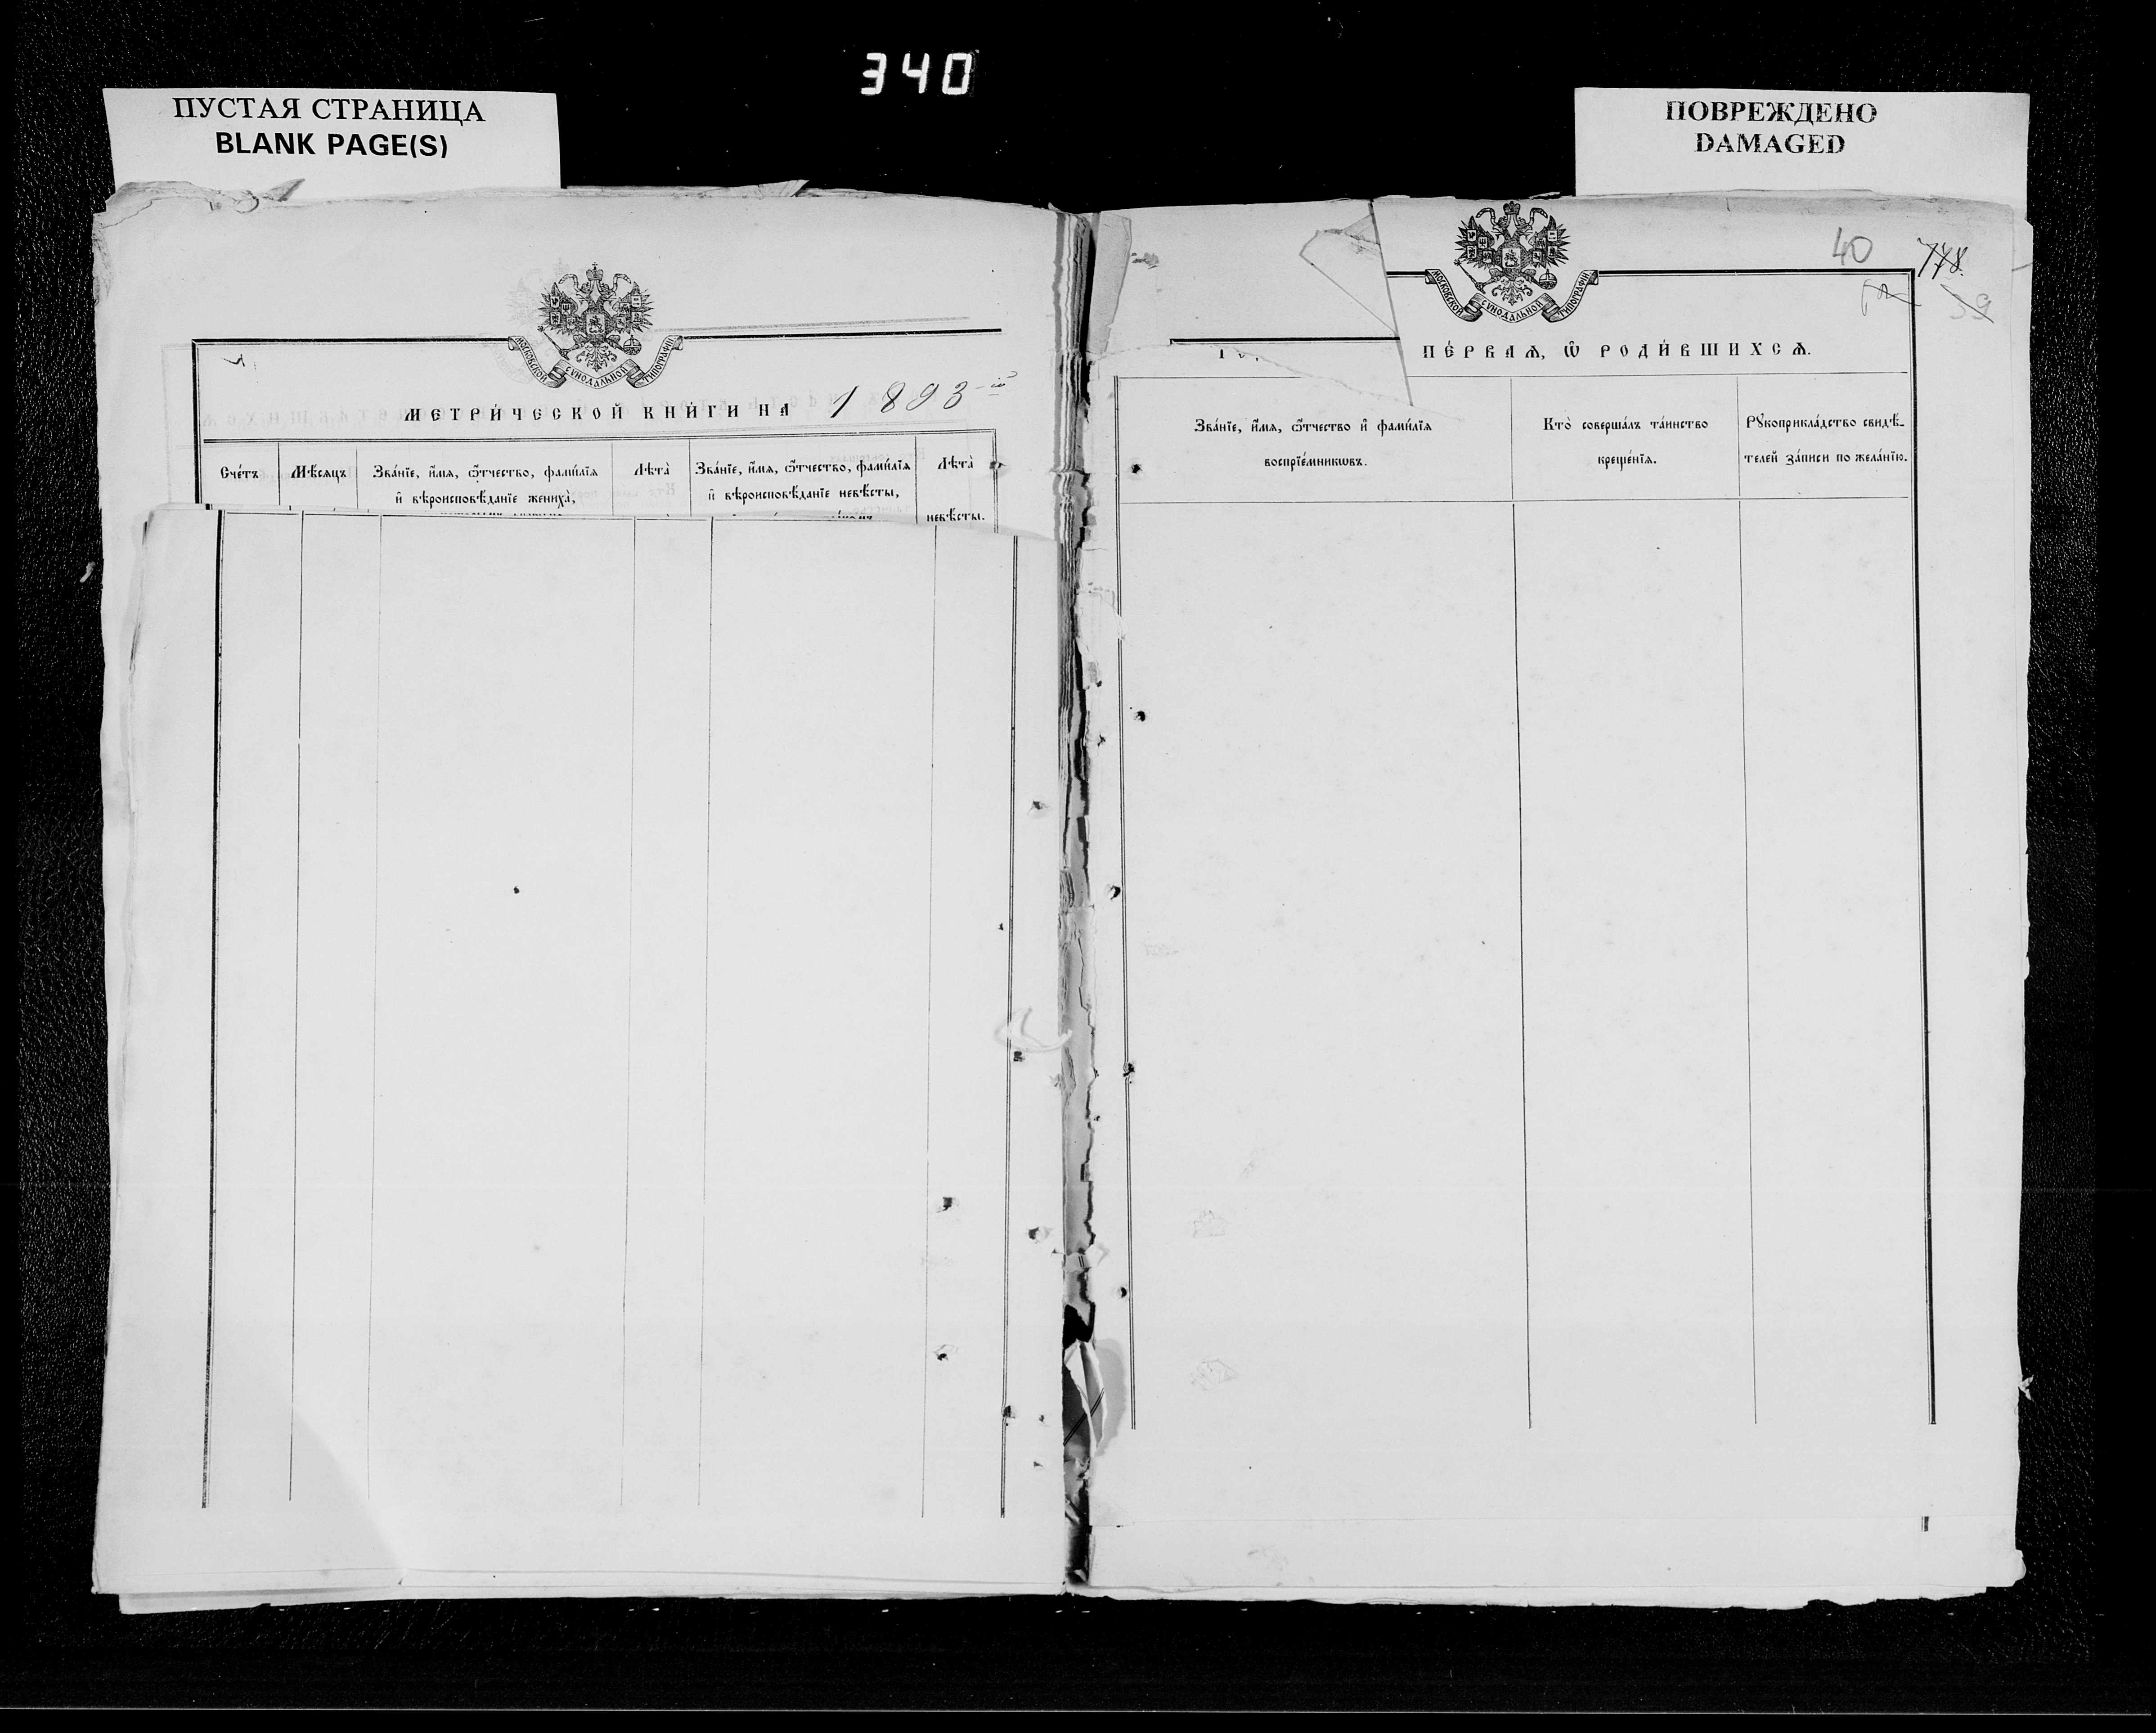 340
ПУСТАЯ СТРАНИЦА
BLANK PAGE(S)
ПОВРЕЖДЕНО
DAMAGED
МОСКОВСКОЙ СѴНОДАЛЬНОЙ ТИПОГРАФІИ
МЕТРИ́ЧЕСКОЙ КНИ́ГИ НА 1893
Сче́тъ
Мѣсяцъ
Зва́нїе, и҆́мя, ѻ҆́тчество, фамилїѧ
и҆ вѣроисповѣданїе жениха̀,
Лѣта̀
Зва́нїе, и҆́мя, ѻ҆́тчество, фамилїѧ
и҆ вѣроисповѣданїе невѣсты,
Лѣта̀
невѣсты.
МОСКОВСКОЙ СѴНОДАЛЬНОЙ ТИПОГРАФІИ
40
778.
39
ПЕ́РВАѦ, Ѡ҆ РОДИ́ВШИХСѦ.
Зва́нїе, и҆́мя, ѻ҆́тчество и҆ фами́лїѧ
воспрїе́мникѡвъ.
Кто̀ соверша́лъ та́инство
креще́нїѧ.
Рꙋкоприкла́дство свидѣ-
телей за́писи по жела́нїю.